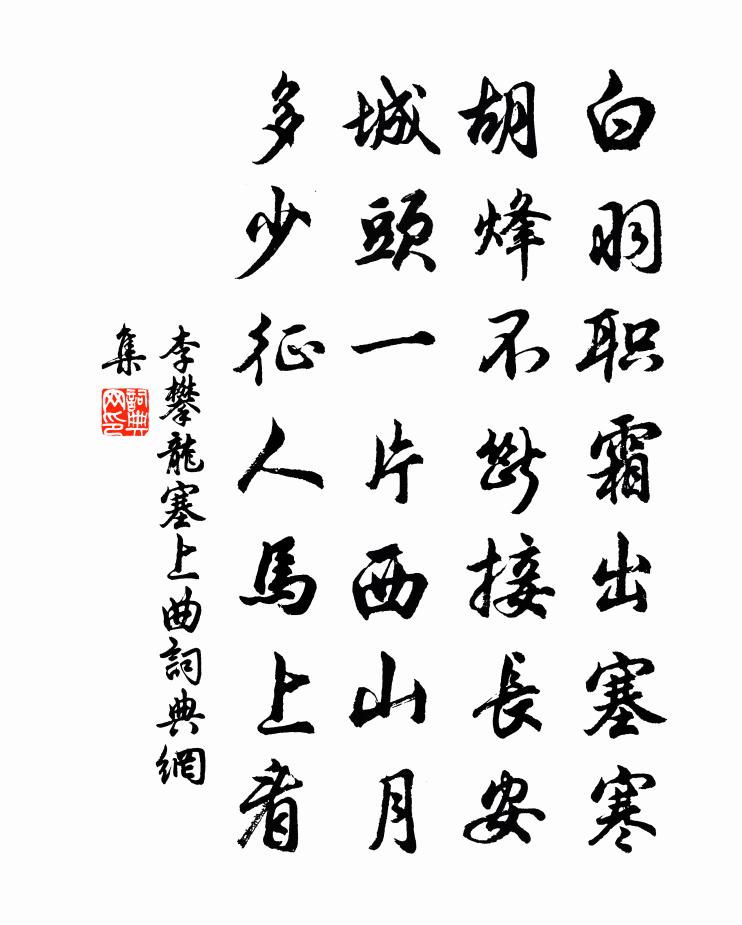 白羽职霜出塞寒
胡烽不斷接長安
城頭一片西山月
多少征人馬上看
李攀龍塞上曲詞典網
集
詞典
网印